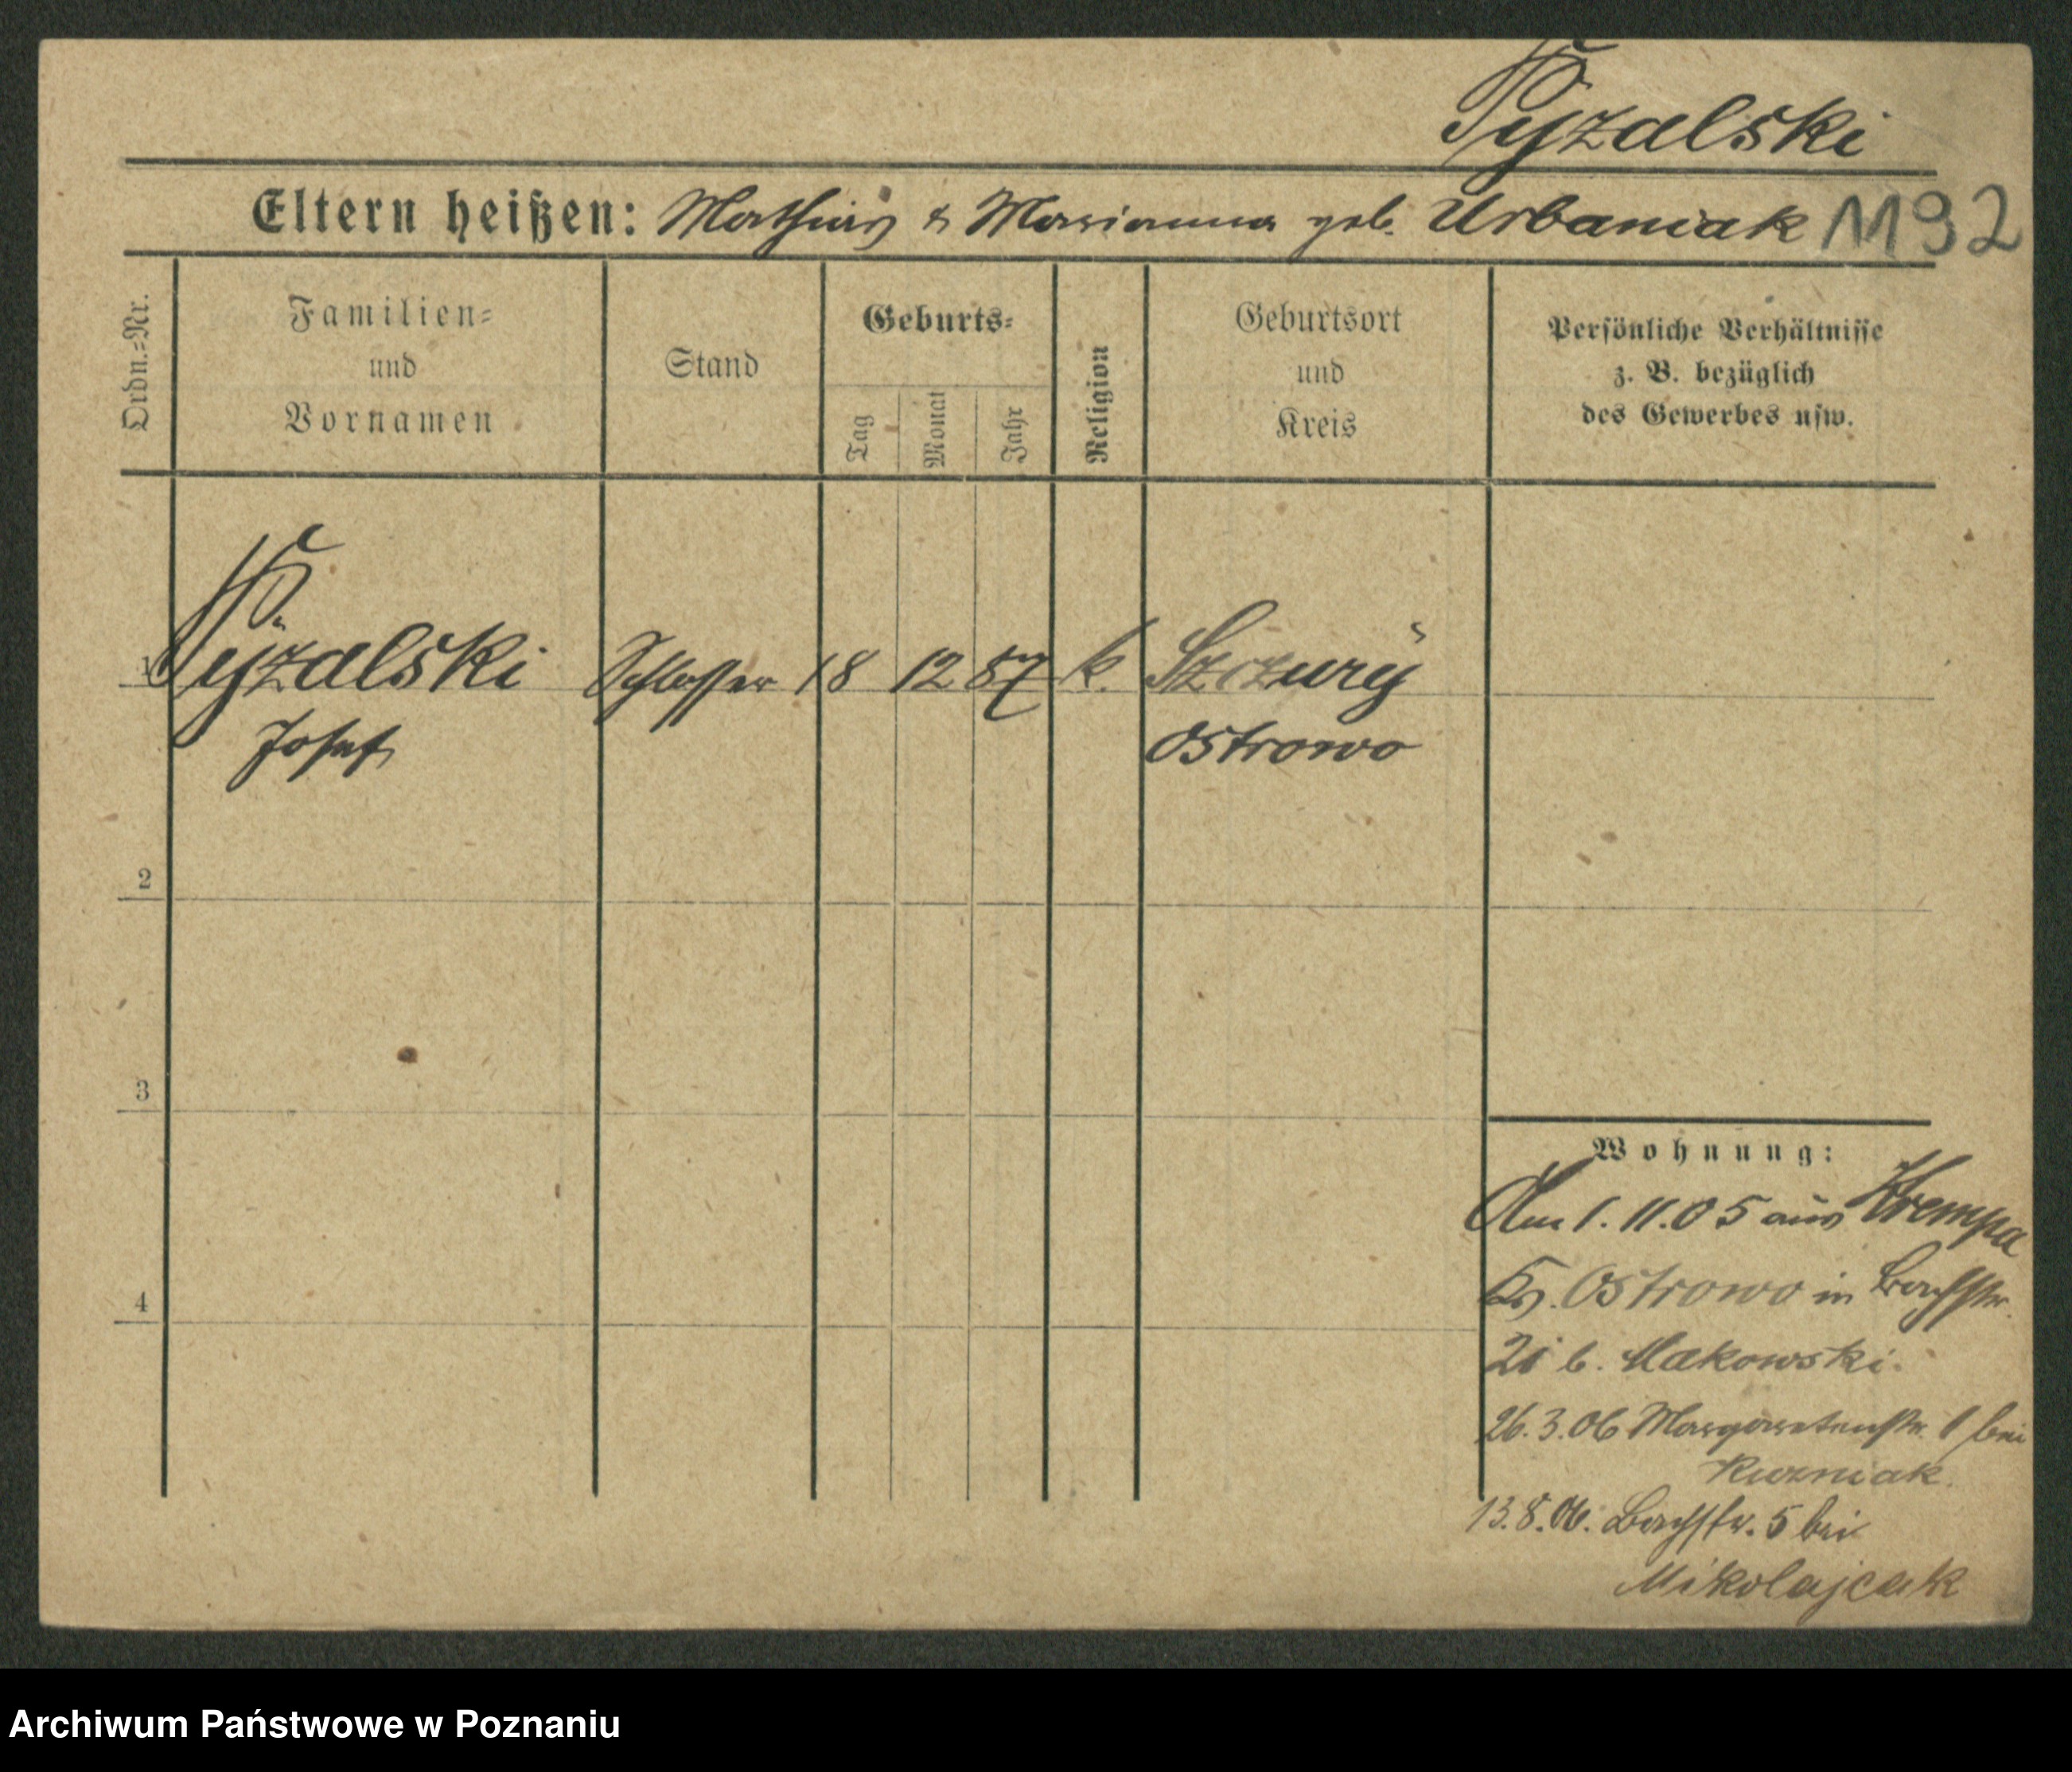 Pyzalski
Eltern heißen: Mathias & Marianna geb. Urbaniak 1192
Ordn.-Nr.
Familien-
und
Vornamen
Stand
Geburts-
Tag
Monat
Jahr
Religion
Geburtsort
und
Kreis
Persönliche Verhältnisse
z. B. bezüglich
des Gewerbes usw.
1 Pyzalski Schlosser 18 12 87 k. Szczury
Josef Ostrowo
2
3
4
Wohnung:
Am 1.11.05 aus Krempa
Krs. Ostrowo in Bachstr.
21 b. Makowski.
26.3.06 Margaretenstr. 1 bei
Kuzniak.
13.8.06. Bachstr. 5 bei
Mikolajcak
Archiwum Państwowe w Poznaniu